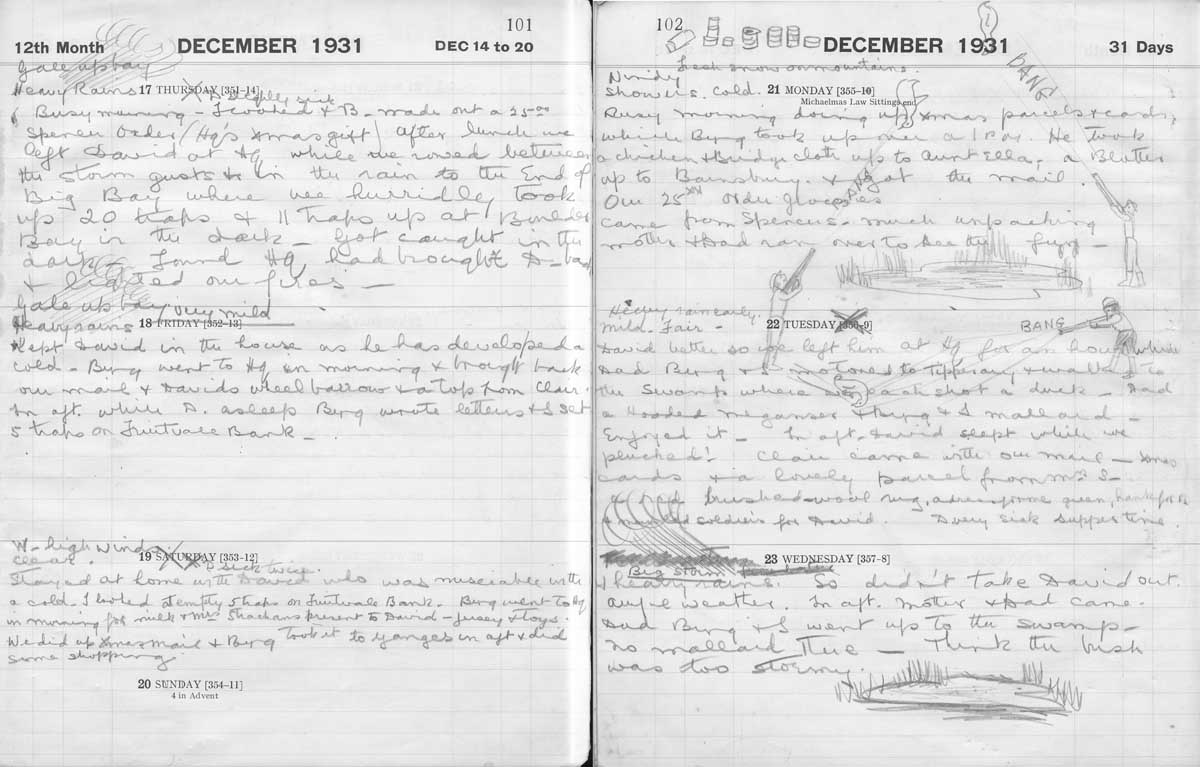 101
12th Month DECEMBER 1931 DEC 14 to 20
Gale up bay
Heavy Rains 17 THURSDAY [351-14]
Busy morning – I cooked & B. made out a 25.00
Spencer Order (Hqs Xmas gift) After lunch we
left David at Hq while we rowed between
the storm gusts & in the rain to the End of
Big Bay where we hurridly took
up 20 traps & 11 traps up at Boulder
Bay in the dark – Got caught in the
dark – Found Hq had brought D. back
& lighted our fires –
Gale up bay / Very mild
Heavy rains 18 FRIDAY [352-13]
Kept David in the house as he has developed a
cold – Berg went to Hq in morning & brought back
our mail & Davids wheel barrow & a top from Clair
In aft. while D. asleep Berg wrote letters & I set
5 traps on Fruitvale Bank –
W – high winds
clear 19 SATURDAY [353-12]
D sick twice.
Stayed at home with David who was miserable with
a cold. I looked at empty 5 traps on Fruitvale Bank. Berg went to Hq
in morning for milk & Mrs present to David – jersey & toys.
We did up Xmas mail & Berg took it to in aft & did
some shopping
20 SUNDAY [354-11]
4 in Advent
102
DECEMBER 1931 31 Days
Fresh snow on mountains.
Windy
Showers. Cold. 21 MONDAY [355-10]
Michaelmas Law Sittings end
BANG
Busy morning doing up Xmas parcels & cards,
while Berg took up over a 1 Pdr. He took
a chicken & Bridge cloth up to Aunt Ella, a
up to Bainsbury & got the mail
BANG
Our 25.00 order groceries
came from Spencers – much unpacking
Mother & Dad ran over to see the fun –
Heavy rain early.
Mild. Fair – 22 TUESDAY [356-9]
BANG
David better so we left him at Hq for an hour while
Dad Berg & I motored to Tipperary & walked to
the Swamp where we each shot a duck – Dad
a Hooded Meganser & Berg & I mallard –
Enjoyed it – In aft. David slept while we
plucked! Clair came with our mail – Xmas
cards & a lovely parcel from Mrs S–
brushed-wool rug, a dress for me green,
soldiers for David. D very sick supper time.
23 WEDNESDAY [357-8]
Big Storm
& heavy rains. So didn't take David out.
awful weather. In aft. Mother & Dad came.
Dad Berg & I went up to the Swamp –
no mallard there – Think the bush
was too stormy.